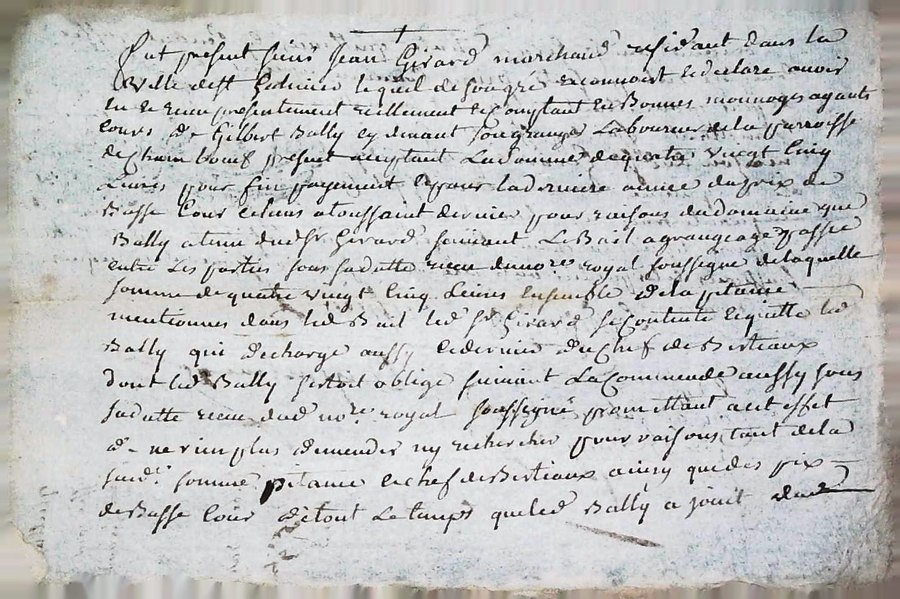 Fut présent sieur Jean Girard marchand résidant dans la
Ville de St Galmier lequel de son gré reconnoist et declare avoir
eu et receu présentement réellement et comptant en Bonnes monnoyes ayants
Cours de Gilbert Bally cy devant son granger Laboureur de la parroisse
de Chambœuf présent acceptant La somme de quatre vingt Cinq
Livres pour fin payement et pour la derniere année du prix de
Basse Cour echeus a toussaint dernier pour raisons du domaine que
Bally a tenu dud Sr Girard suivant Le Bail a grangeage passé
entre Les parties sous sa datte receu du no.re royal soussigné de laquelle
somme de quatre vingt Cinq Livres Ensemble de la pitance
mentionnée dans led Bail led Sr Girard se Contente et quitte led
Bally qui decharge aussy ce dernier du Chef de Bestiaux
dont led Bally s'estoit obligé suivant La Commende aussy sous
sa datte receu dud no.re royal soussigné promettant a cet effet
de ne rien plus demander ny rechercher pour raisons tant de la
susd. somme pitance et chef de Bestiaux ainsy que des prix
de Basse Cour de tout Le temps que led Bally a jouit dud